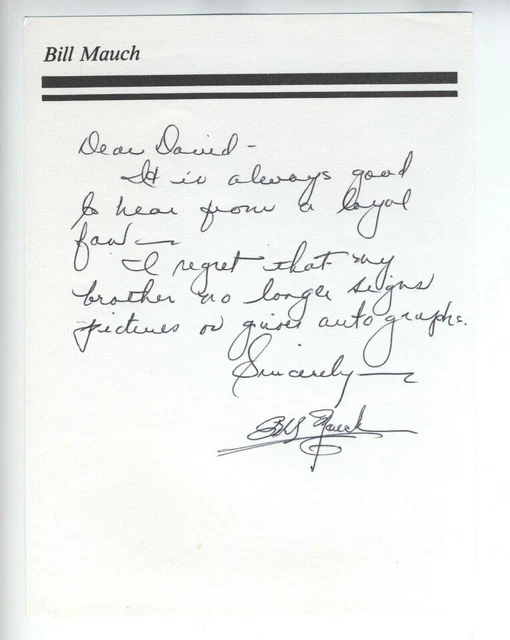 Bill Mauch
Dear David -
It is always good
to hear from a loyal
fan —
I regret that my
brother no longer signs
pictures or gives autographs.
Sincerely —
Bill Mauch